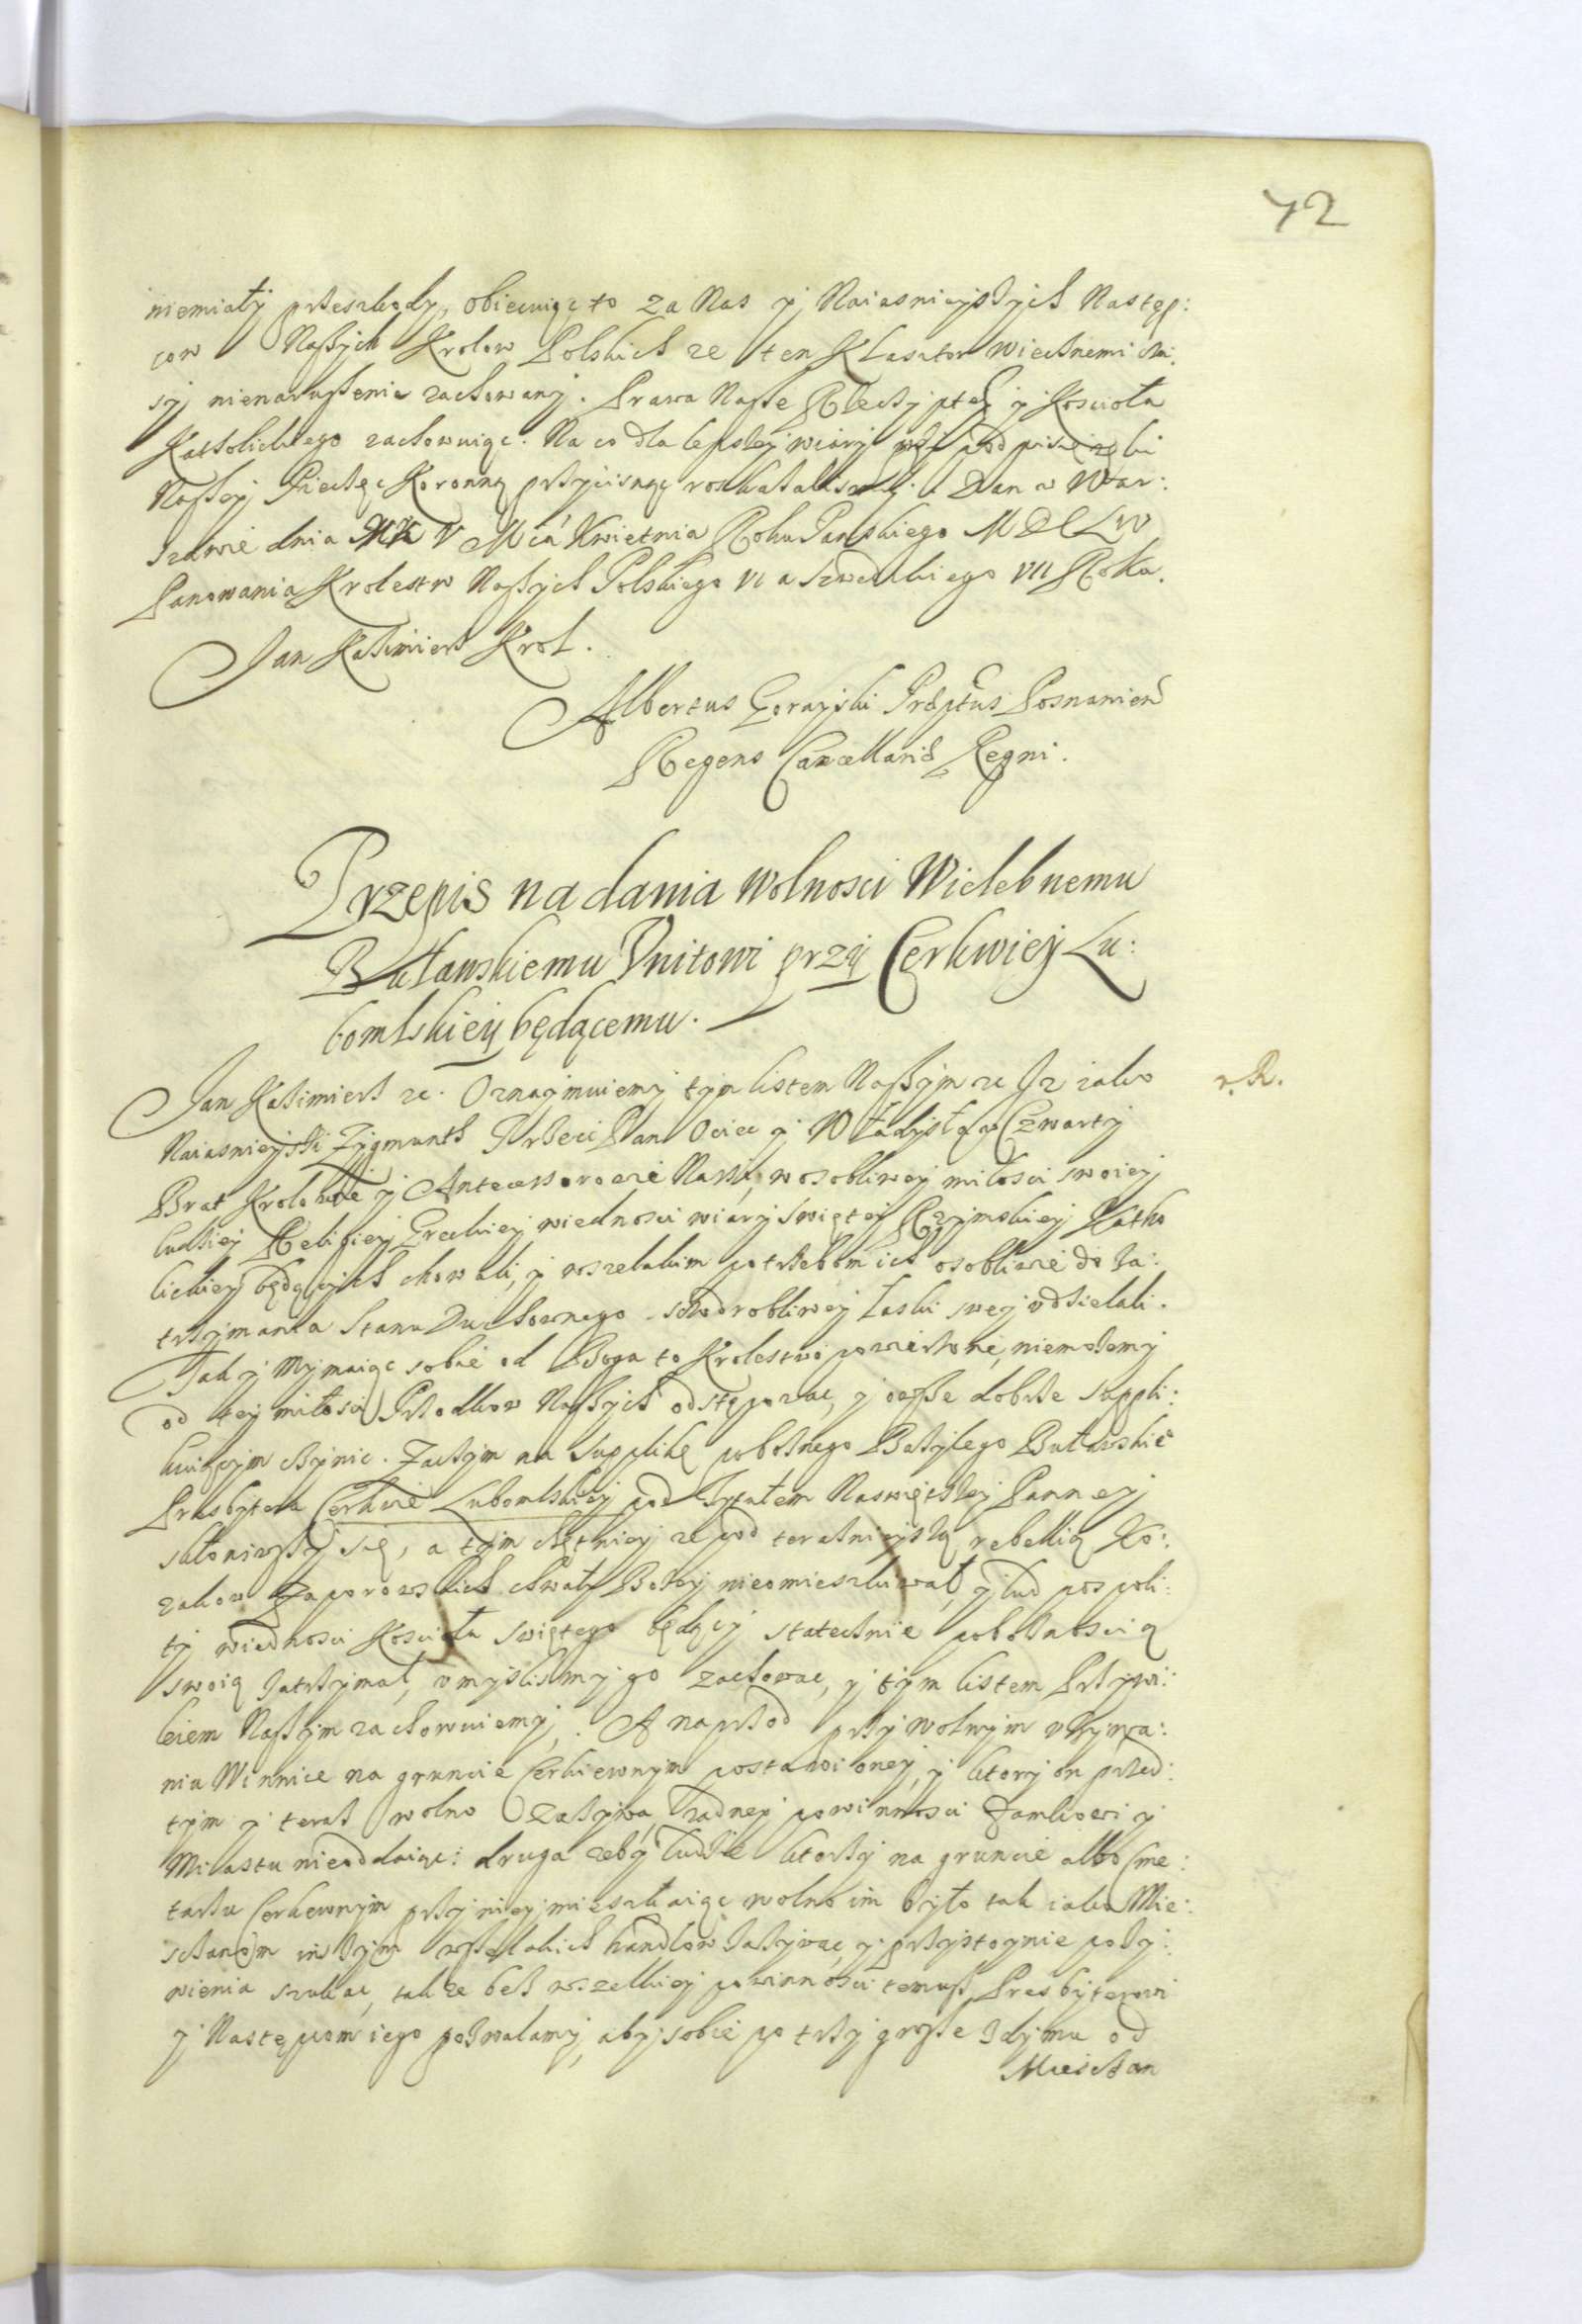 42
niemiały przeszkody, obiecuiąc to za Nas y Naiasnieyszych Następ:
cow Naszych Krolow Polskich ze ten Klasztor wiecznemi cza:
sy nienaruszenie zachowany. Prawa Nasze Rzeczyptey y Koscioła
Katholickiego zachowuiąc. Na co dla lepszey wiary przy podpisie ręki
Naszey Pieczęc Koronną przycisnąc roskazalismy. Dan w War:
szawie dnia V Mca Kwietnia Roku Panskiego MDCLIV
Panowania Krolestw Naszych Polskiego VI a Szwedzkiego VII Roku.
Jan Kazimierz Krol.
Albertus Gorayski Prdptus Posnanien
Regens Cancellariæ Regni.
Przepis nadania wolnosci Wielebnemu
Butawskiemu Vnitowi przÿ Cerkwieÿ Lu:
bomlskieÿ będącemu.
Jan Kazimierz etc. Oznaymuiemy tym listem Naszym etc Jz iako
r. R.
Naiasnieyszi Zygmunth Trzeci Pan Ociec y Władysław Czwarty
Brat Krolowie y Antecessorowie Naszi, w osobliwey miłosci swoiey
ludziey Religiey Greckiey wiednosci wiary swiętey Rzymskiey Katho
lickiey będących chowali, y wszelakim potrzebom ich osobliwie do za:
trzymania Stanu Duchownego szczodrobliwey łaski swey vdzielali.
Tak y My maiąc sobie od Boga to Krolestwo powierzone, niemozemy
od tey miłosci Przodkow Naszych odstępowac, y owsze dobrze suppli:
kuiącym czynic. Zaczym na Supplikę poboznego Bazylego Butawskie
Presbytera Cerkwie Lubomlskiey pod Tytułem Naswiętszey Panney
skłoniwszy się, a tym chętniey ze pod teraznieyszą rebellią Ko:
zakow Zaporowskich chwały Bozey nieomieszkiwał, y lud pospoli:
ty wiednosci Koscioła swiętego będący statecznie poboznoscią
swoią zatrzymał, vmyslilismy go zachowac, y tym listem Przywi:
leiem Naszym zachowuiemy. A naprzod przy wolnym vzywa:
niu Winnice na gruncie Cerkiewnym postawioney, y ktory on przed:
tym y teraz wolno Zazywa, zadney powinnosci Zamkowi y
Miastu nieoddaiąc: druga zeby ludzie ktorzy na gruncie albo Cme:
tarzu Cerkewnym przy niey mieszkaiąc wolno im było tak iako Mie:
sczanom inszym wszelakich handlow zazywac, y przystoynie pozy:
wienia szukac, takze bez wszelkiey powinnosci temusz Presbyterowi
y Nastepcom iego pozwalamy, aby sobie po trzy grosze zdymu od
Miesczan